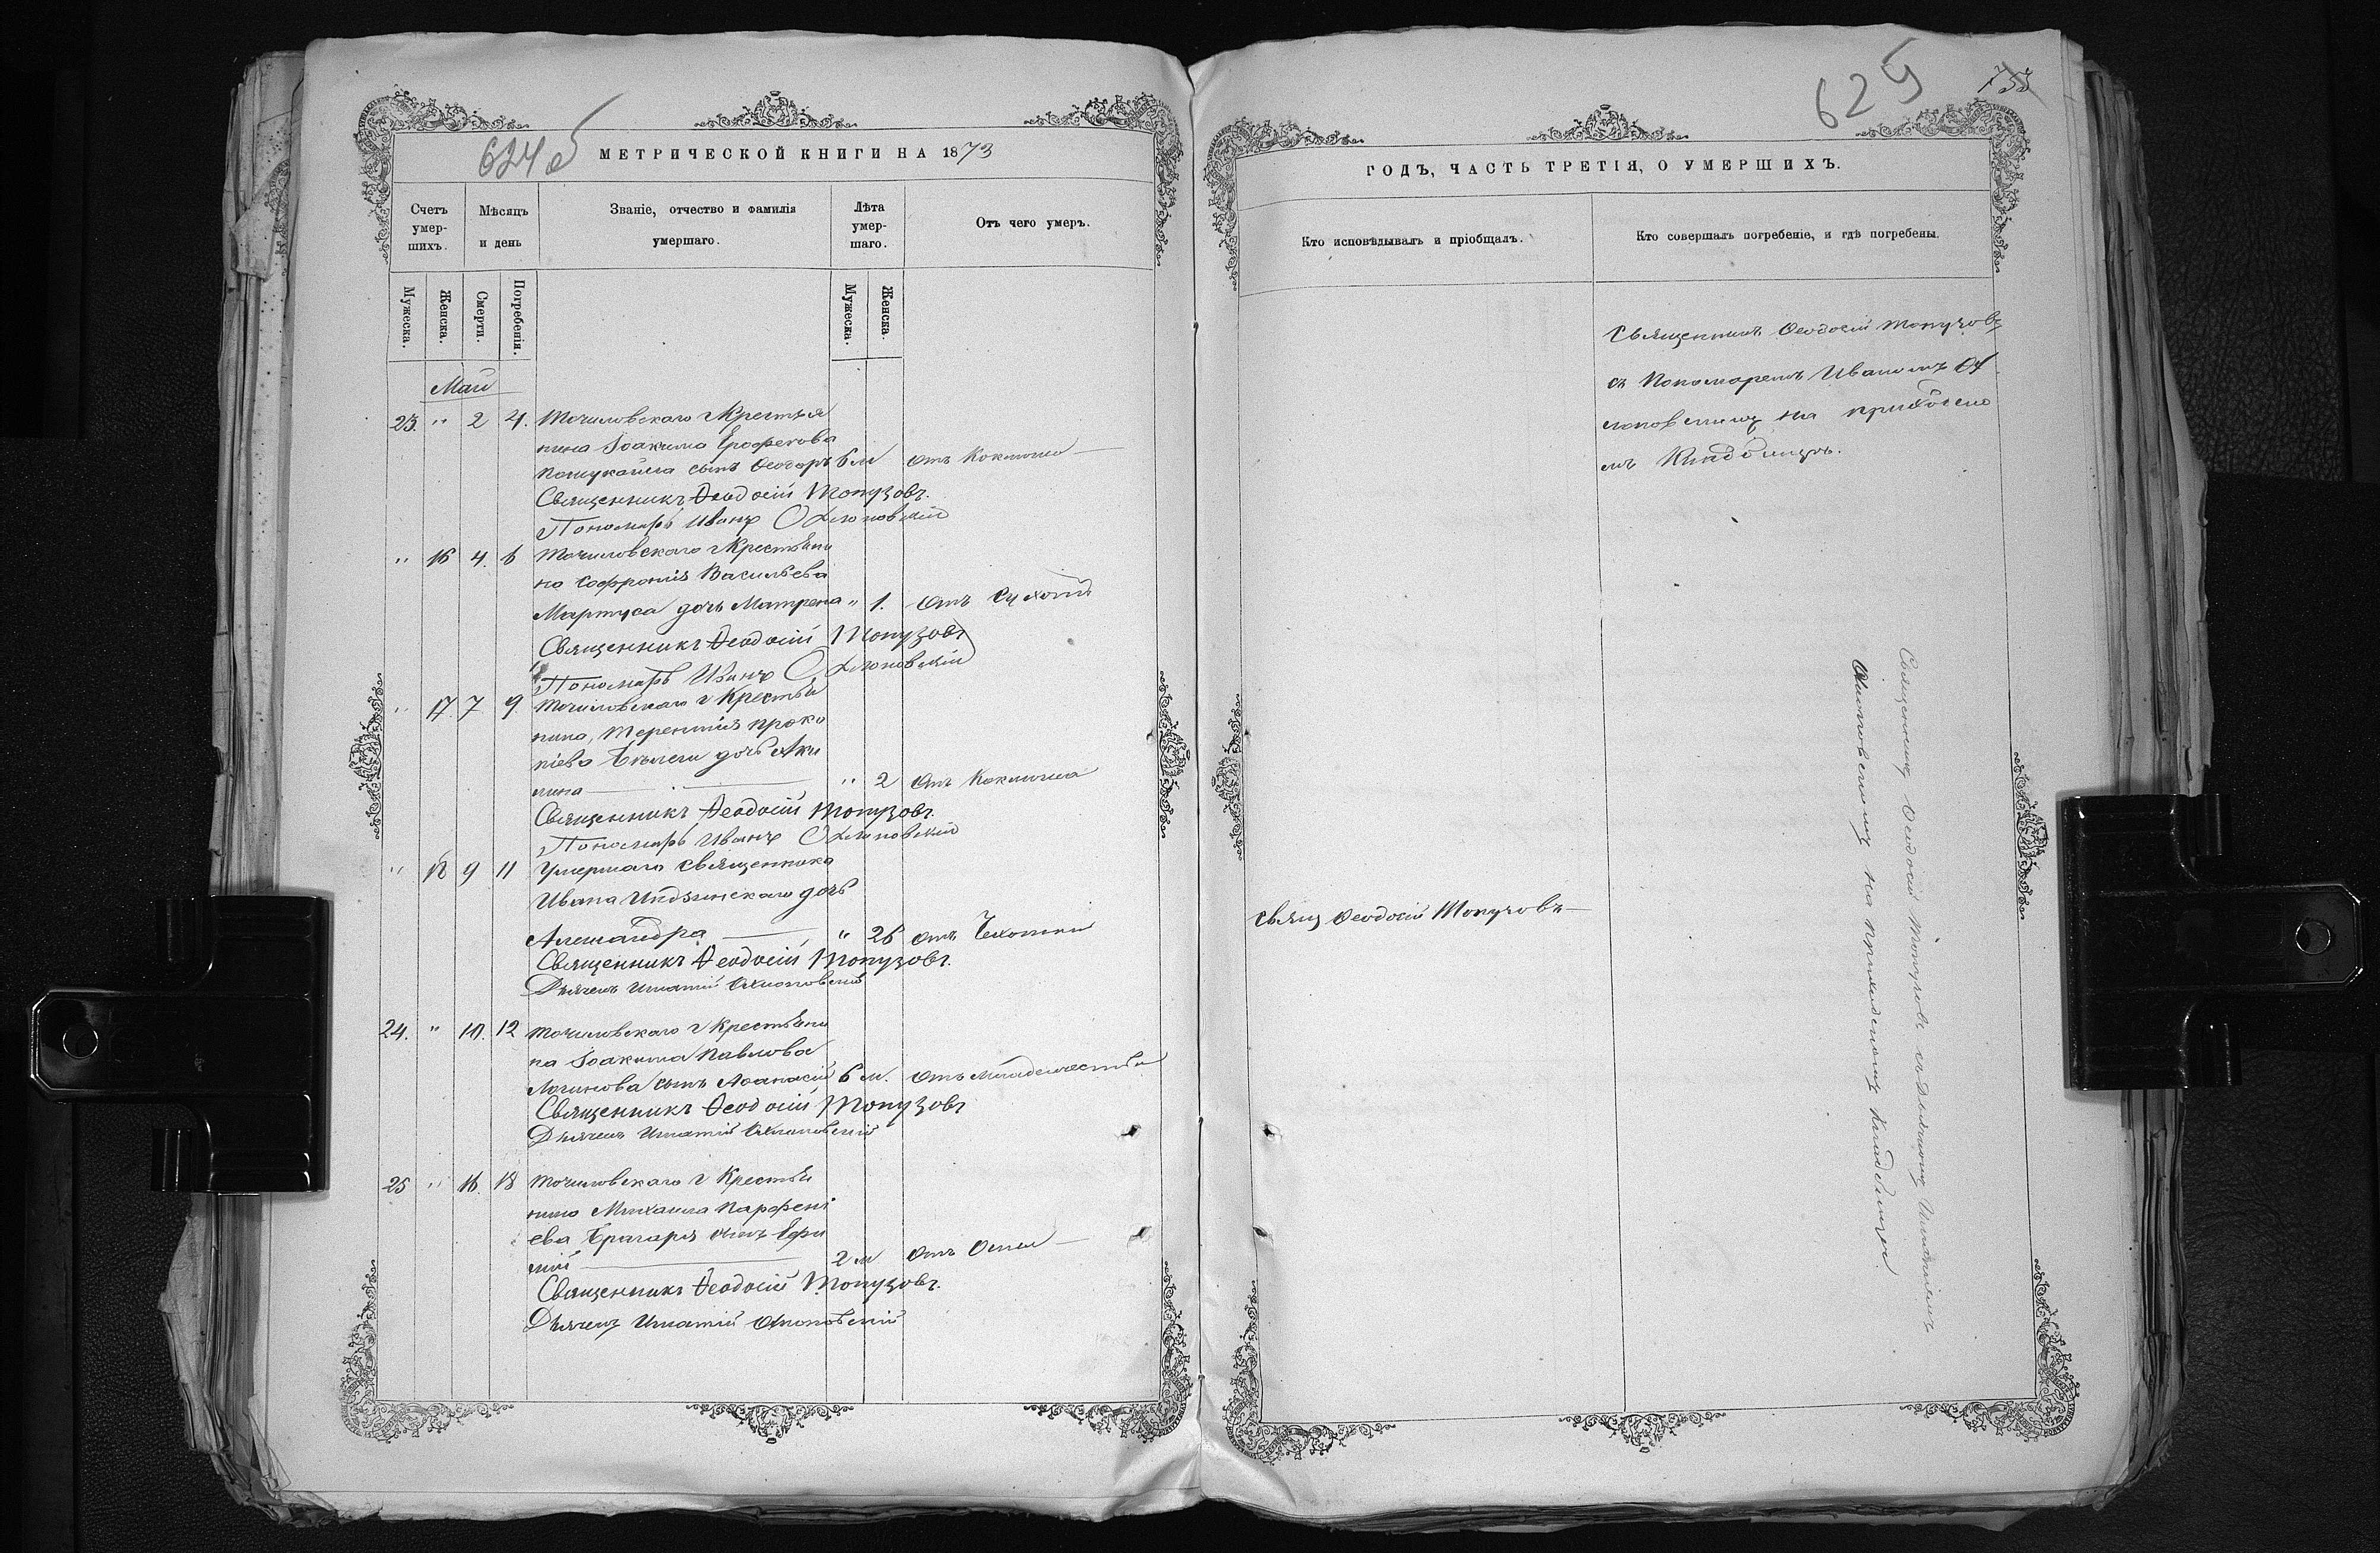 624 об
МЕТРИЧЕСКОЙ КНИГИ НА 1873
Счетъ умер-шихъ.
Мѣсяцъ и день
Званіе, отчество и фамилія умершаго.
Лѣта умер-шаго.
Отъ чего умеръ.
Мужеска.
Женска.
Смерти.
Погребенія.
Мужеска.
Женска.
Май
23. " 2 4. Точиловскаго Крестья
нина Іоакима Ерофеева
сынъ Феодоръ 6 м отъ Коклюша
Священникъ Феодосій Топузовъ.
Пономарь Иванъ
" 16 4. 6 Точиловскаго Крестьяни
на Софронія Васильева
Мартуса дочь Матрена " 1. отъ Сухоты
Священникъ Феодосій Топузовъ
Пономарь Иванъ
" 17 7 9 Точиловскаго Крестья
нина, Терентія Проко
піева дочь Аки
лина " 2 отъ Коклюша
Священникъ Феодосій Топузовъ.
Пономарь Иванъ
" 18 9 11 Умершаго Священника
Ивана дочь
Александра " 26 отъ Чахотки
Священникъ Феодосій Топузовъ.
Дьячекъ Игнатій
24. " 10. 12 Точиловскаго Крестьяни
на Іоакима Павлова
Логинова сынъ Афанасій 6 м. отъ младенчества
Священникъ Феодосій Топузовъ
Дьячекъ Игнатій
25 " 16. 18 Точиловскаго Крестья
нина Михаила Парфені
ева сынъ Ефи
мій 2 м отъ Оспы
Священникъ Феодосій Топузовъ.
Дьячекъ Игнатій
625
753
ГОДЪ, ЧАСТЬ ТРЕТІЯ, О УМЕРШИХЪ.
Кто исповѣдывалъ и пріобщалъ.
Кто совершалъ погребеніе, и гдѣ погребены.
Священникъ Феодосій Топузовъ
съ Пономаремъ Иваномъ
на приходско
мъ Кладбищѣ.
Свящ Феодосій Топузовъ
Священникъ Феодосій Топузовъ съ Дьячкомъ Игнатіемъ
на приходскомъ Кладбищѣ